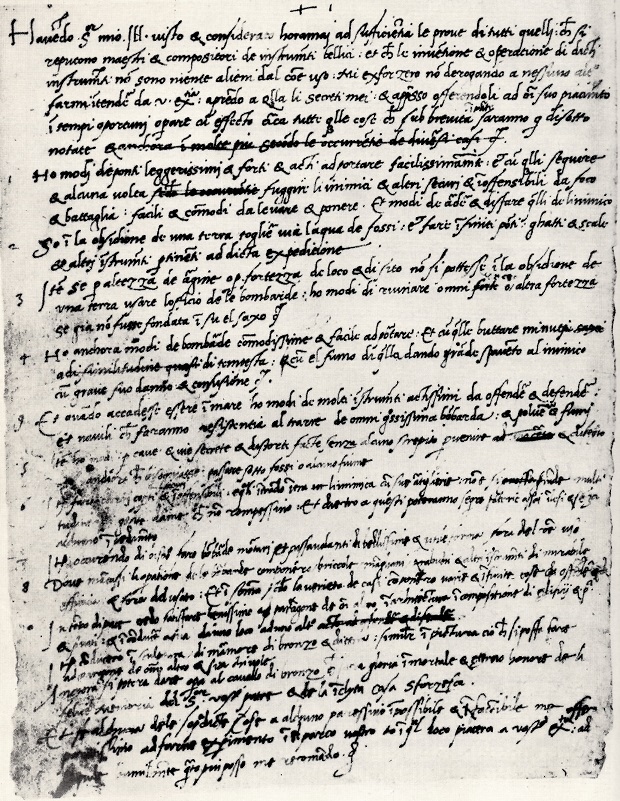 Havẽdo Sr mio Ill. visto & considerato horamai ad sufficiẽtia le prove di tutti quelli ch̃ si
reputono maestri & compositori de instrumẽti bellici: et ch̃ le invẽtione & operatione di dicti
instrumẽti nõ sono niente alieni dal cõe uso: Mi exforzerò nõ derogando a nessuno
farmi ĩtendere da v. exa: aprẽdo a qlla li secreti mei: & apresso offerendoli ad õi suo piacimẽto
ĩ tempi oportuni operare cũ effecto circa tutte qlle cose ch̃ sub brevità saranno q disotto
notate & anchora ĩ molte più secõdo le occurrẽtie de diversi casi
1 Ho modi de ponti leggerissimi & forti & acti ad portare facilissimamẽte: et cũ qlli seguire
& alcuna volta secõdo le occurrẽtie fuggire li inimici & altri securi & ĩoffensibili da foco
& battaglia: facili & cõmodi da levare & ponere. Et modi de ardere & disfare qlli de linimico
2 So ĩ la obsidione de una terra toglier via laqua de fossi: et fare ĩfiniti põti ghatti & scale
& altri ĩstrumẽti ptinẽti ad dicta expeditione
3 Itẽ se p altezza de argine o p fortezza de loco & di sito nõ si pottesse ĩ la obsidione de
una terra usare lofficio de le bombarde: ho modi di ruinare omni forte o altra fortezza
se già nõ fusse fondata ĩ su el saxo
4 Ho anchora modi de bombarde cõmodissime & facile ad portare: Et cũ qlle buttare minuti
ad similitudine quasi di tempesta: & cũ el fumo di qlla dando grãde spavẽto al inimico
cũ grave suo danno & confusione
9 Et quãdo accadesse essere ĩ mare ho modi de molti ĩstrumẽti actissimi da offender & defender
et navili ch̃ faranno resistentia al trarre de omni grossissima bõbarda: & polver & fumi
5 Itẽ ho modi p cave & vie secrete & distorte facte senza alcuno strepito pvenire ad
anchora ch̃ bisogniasse passare sotto fossi o alcuno fiume
6 Item farò carri coperti & ĩoffensibili: e quali ĩtrãdo ĩtra li inimica cũ sue artiglierie: nõ è si
di gente darme ch̃ nõ rompessino. Et dietro a questi poteranno seguire fanterie assai illesi & senza
alchuno ĩpedimẽto
7 Itẽ occurrendo di bisogno farò bombarde mortari et passavolanti di bellissime & utile forme fori del cõe uso
8 Dove mancassi la operatione de le bombarde componerò briccole manghani trabuchi & altri ĩstrumẽti di mirabile
efficacia & fora del usato: Et ĩ somma secõdo la varietà de casi cõponerò varie & ĩfinite cose da offender
In tẽpo di pace credo satisfare benissimo ad paragone de õi altro ĩ architectura ĩ compositione di edificii
& privati: & ĩ conducer aqua da uno loco ad uno altro
Itẽ conducerò ĩ sculptura di marmore di bronzo & di terra: similiter ĩ pictura ciò ch̃ si possa fare
ad paragone de omni altro & sia chi vole
Anchora si poterà dare opera al cavallo di bronzo ch̃ sarà gloria ĩmortale & eterno honore de la
felice memoria del Sor vostro patre & de la ĩclyta casa Sforzesca
Et se alchuna de le sopradicte cose a alchuno paressino ĩpossibile & ĩfactibile me offer
paratissimo ad farne experimento ĩ el parco vostro o ĩ ql loco piacerà a vostr exa: ad
humilmente quãto più posso me recomãdo